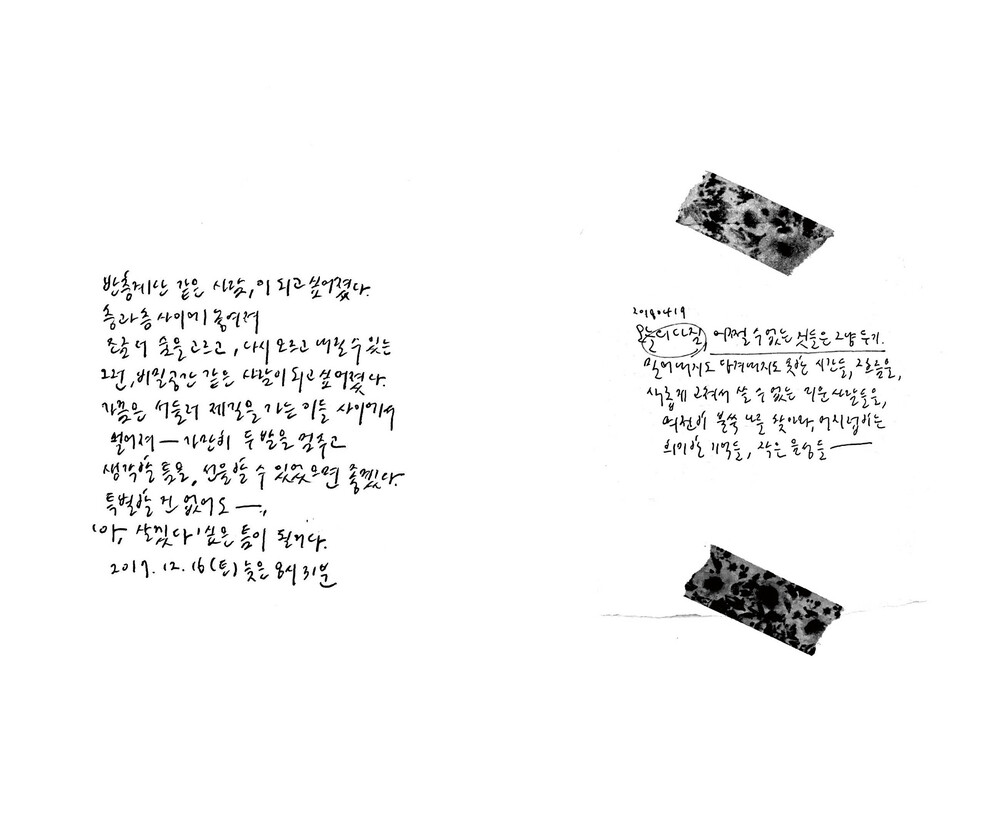 반층계단 같은 사람, 이 되고 싶어졌다.
층과 층 사이에 놓여져
조금 더 숨을 고르고, 다시 오르고 내릴 수 있는
그런, 비밀공간 같은 사람이 되고 싶어졌다.
가끔은 서둘러 제 길을 가는 이들 사이에서
멀어져 — 가만히 두 발을 멈추고
생각할 틈을, 선물할 수 있었으면 좋겠다.
특별할 건 없어도 —,
'아, 살겠다' 싶은 틈이 될거다.
2017. 12. 16 (토) 늦은 8시 31분
20180419
오늘의 다짐, 어쩔 수 없는 것들은 그냥 두기.
밀어내지도 당겨내지도 못한 시간들, 그 흐름을,
새롭게 고쳐서 쓸 수 없는 미운 사람들을,
여전히 불쑥 나를 찾아와 어지럽히는
희미한 기억들, 작은 음성들 —